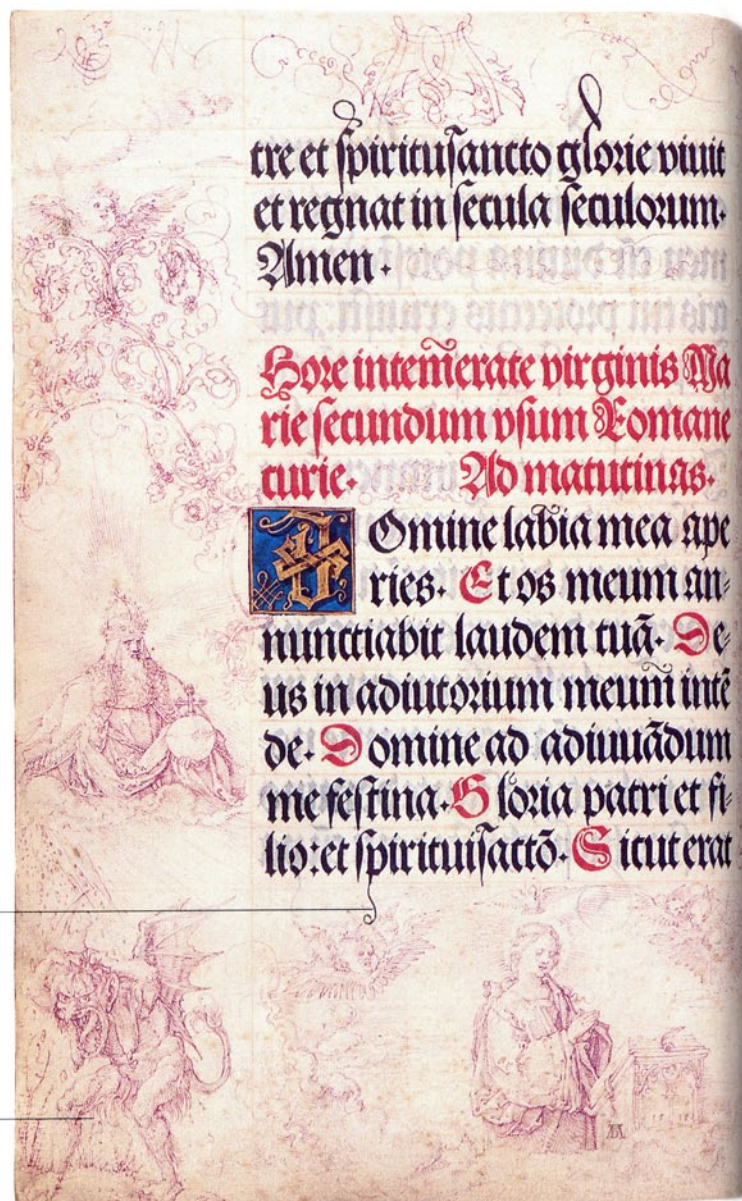 tre et spiritusancto glorie viuit
et regnat in secula seculorum.
Amen.
Hore intem̄erate virginis Ma
rie secundum vsum Romane
curie. Ad matutinas.
Domine labia mea ape
ries. Et os meum an=
nunctiabit laudem tuā. De=
us in adiutorium meum̄ intē
de. Domine ad adiuuādum
me festina. Gloria patri et fi=
lio: et spirituisāctō. Sicut erat